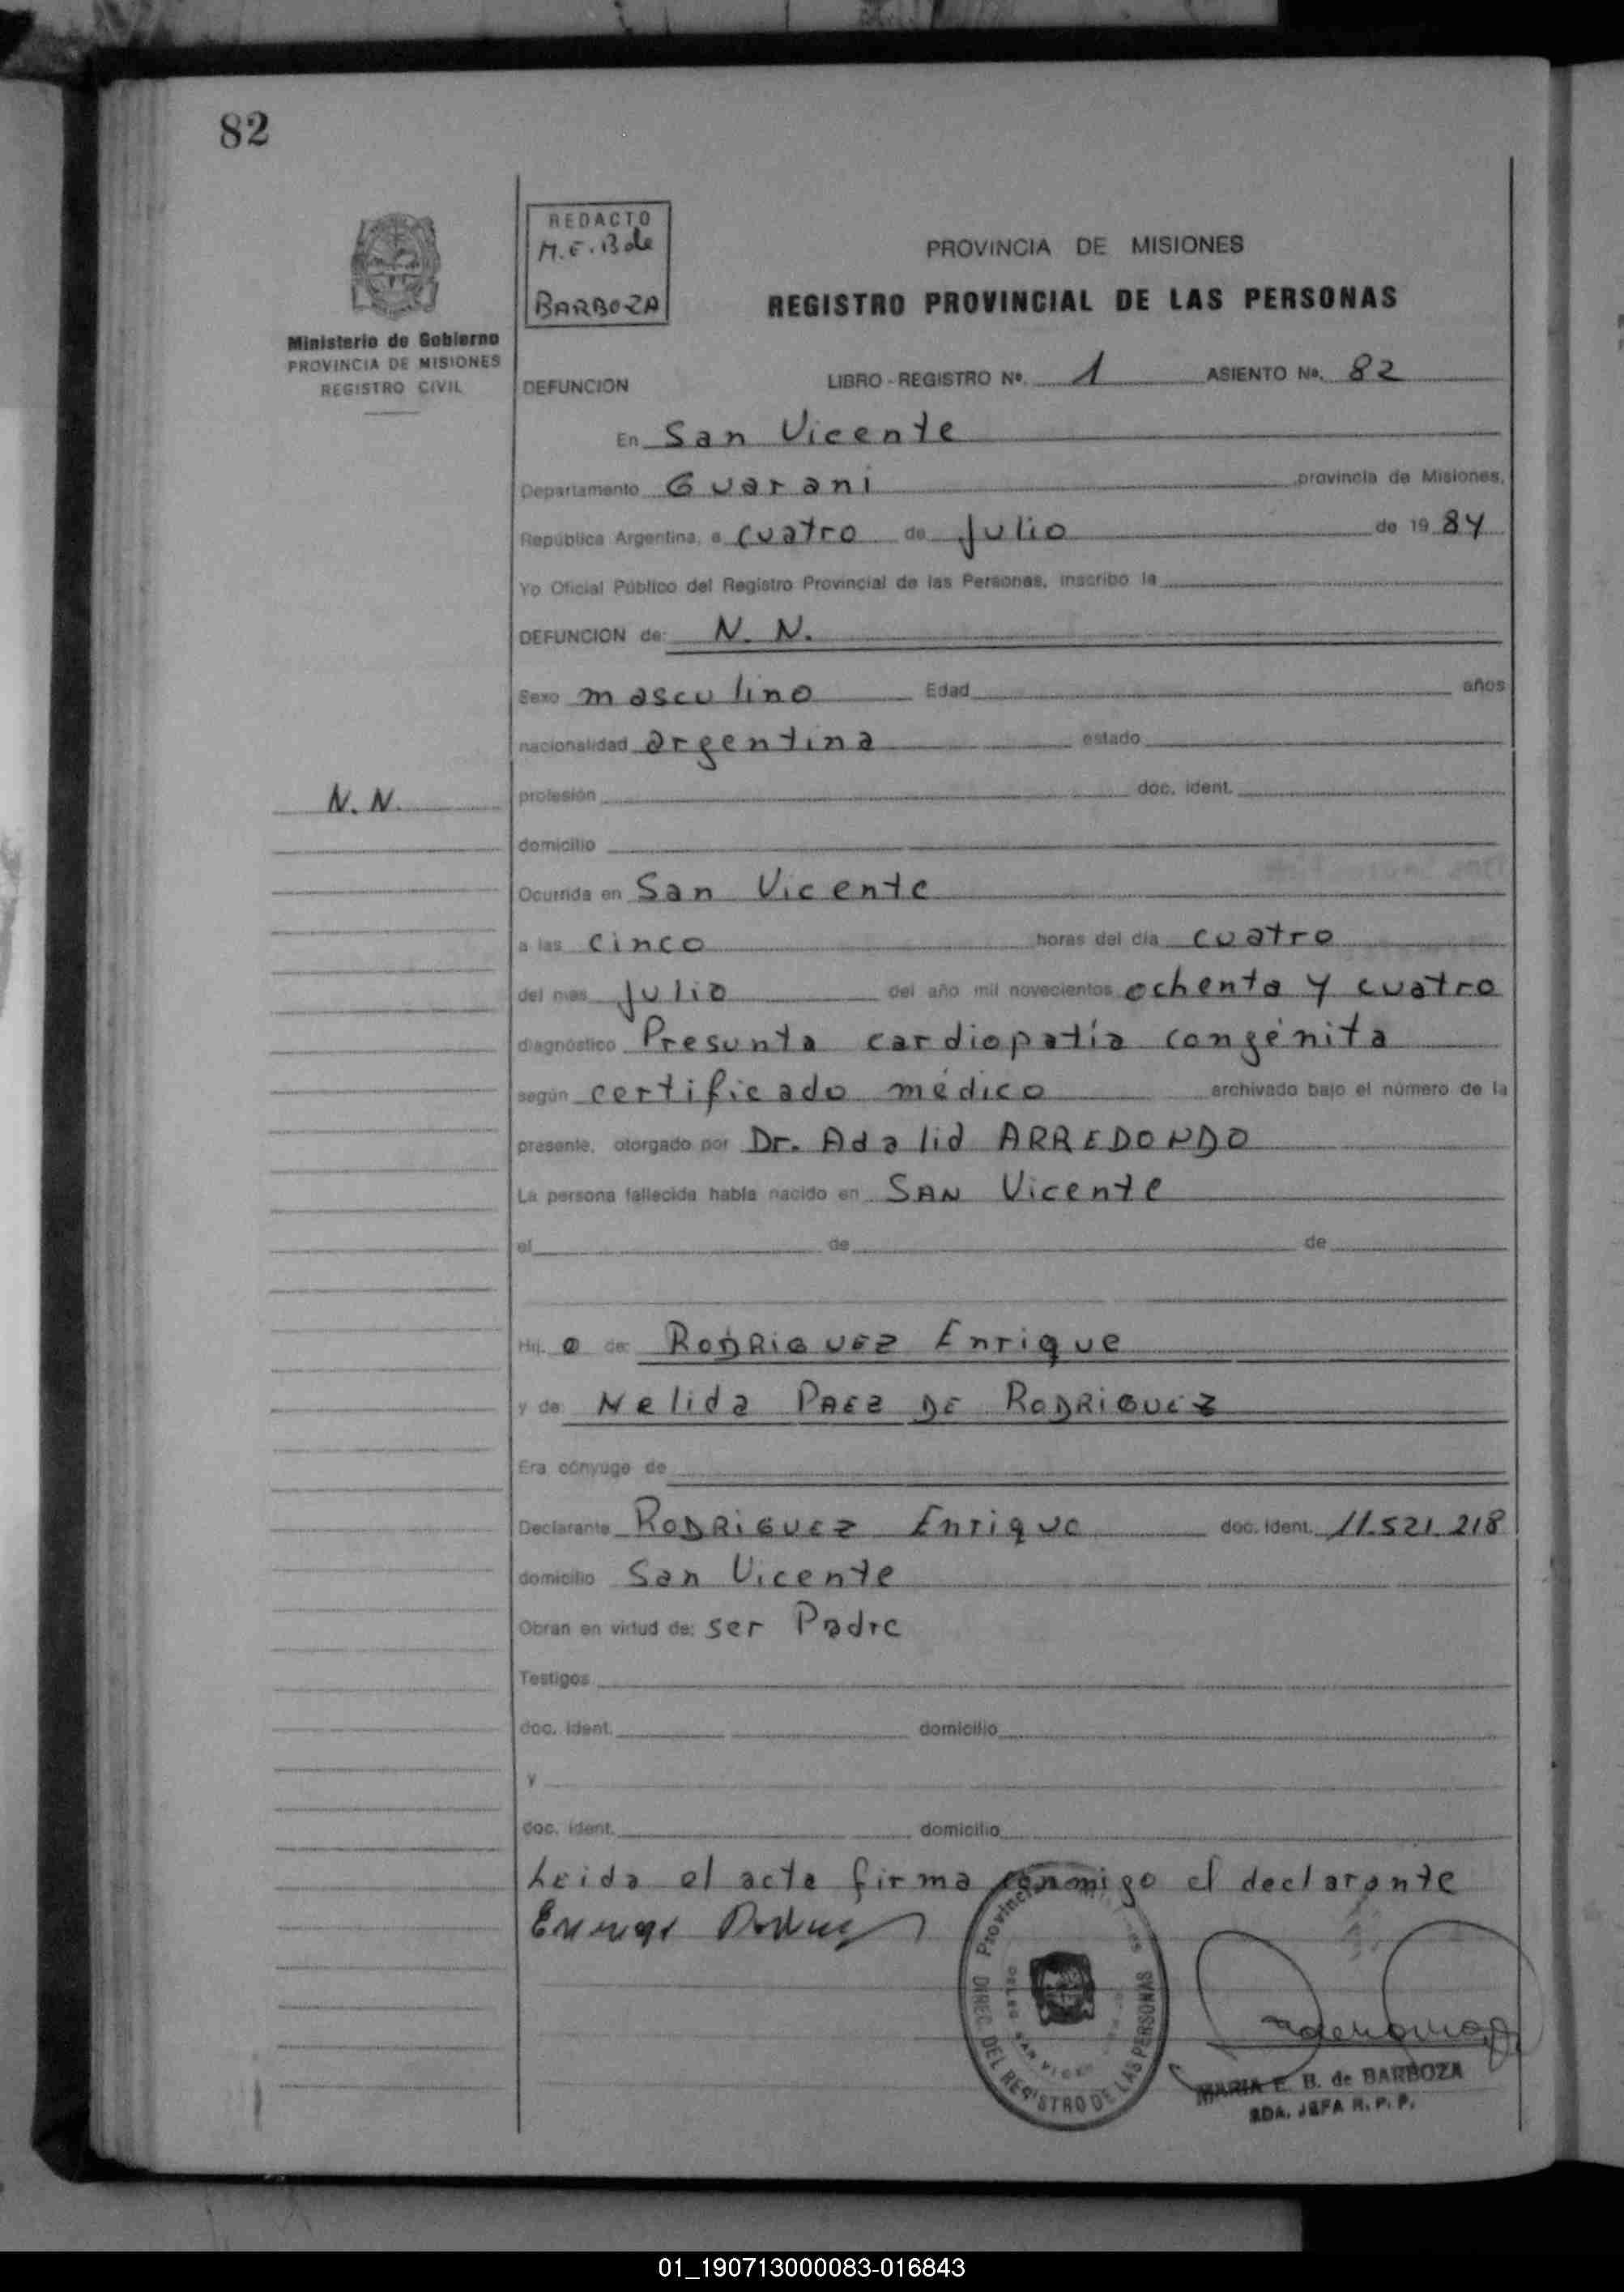 82
REDACTO
M.E.B de
BARBOZA
PROVINCIA DE MISIONES
REGISTRO PROVINCIAL DE LAS PERSONAS
Ministerio de Gobierno
PROVINCIA DE MISIONES
REGISTRO CIVIL
DEFUNCION LIBRO - REGISTRO Nº. 1 ASIENTO Nº. 82
En San Vicente
Departamento Guarani provincia de Misiones,
República Argentina, a cuatro de Julio de 19 84
Yo Oficial Público del Registro Provincial de las Personas, inscribo la
DEFUNCION de: N. N.
Sexo masculino Edad años
nacionalidad argentina estado
N. N.
profesión doc. ident.
domicilio
Ocurrida en San Vicente
a las cinco horas del día cuatro
del mes Julio del año mil novecientos ochenta y cuatro
diagnóstico Presunta cardiopatía congénita
según certificado médico archivado bajo el número de la
presente, otorgado por Dr. Adalid ARREDONDO
La persona fallecida había nacido en SAN Vicente
el de de
Hij o de: RODRIGUEZ Enrique
y de Nelida PAEZ DE RODRIGUEZ
Era cónyuge de
Declarante RODRIGUEZ Enrique doc. ident. 11.521.218
domicilio San Vicente
Obran en virtud de: ser Padre
Testigos
doc. ident. domicilio
y
doc. ident. domicilio
Leida el acta firma conmigo el declarante
Provincia
DIREC. DEL REGISTRO DE LAS PERSONAS
MARIA E. B. de BARBOZA
2DA. JEFA R. P. P.
01_190713000083-016843